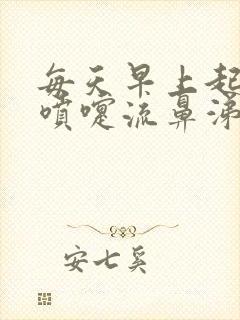 每天早上起
喷嚏流鼻涕
安七奚